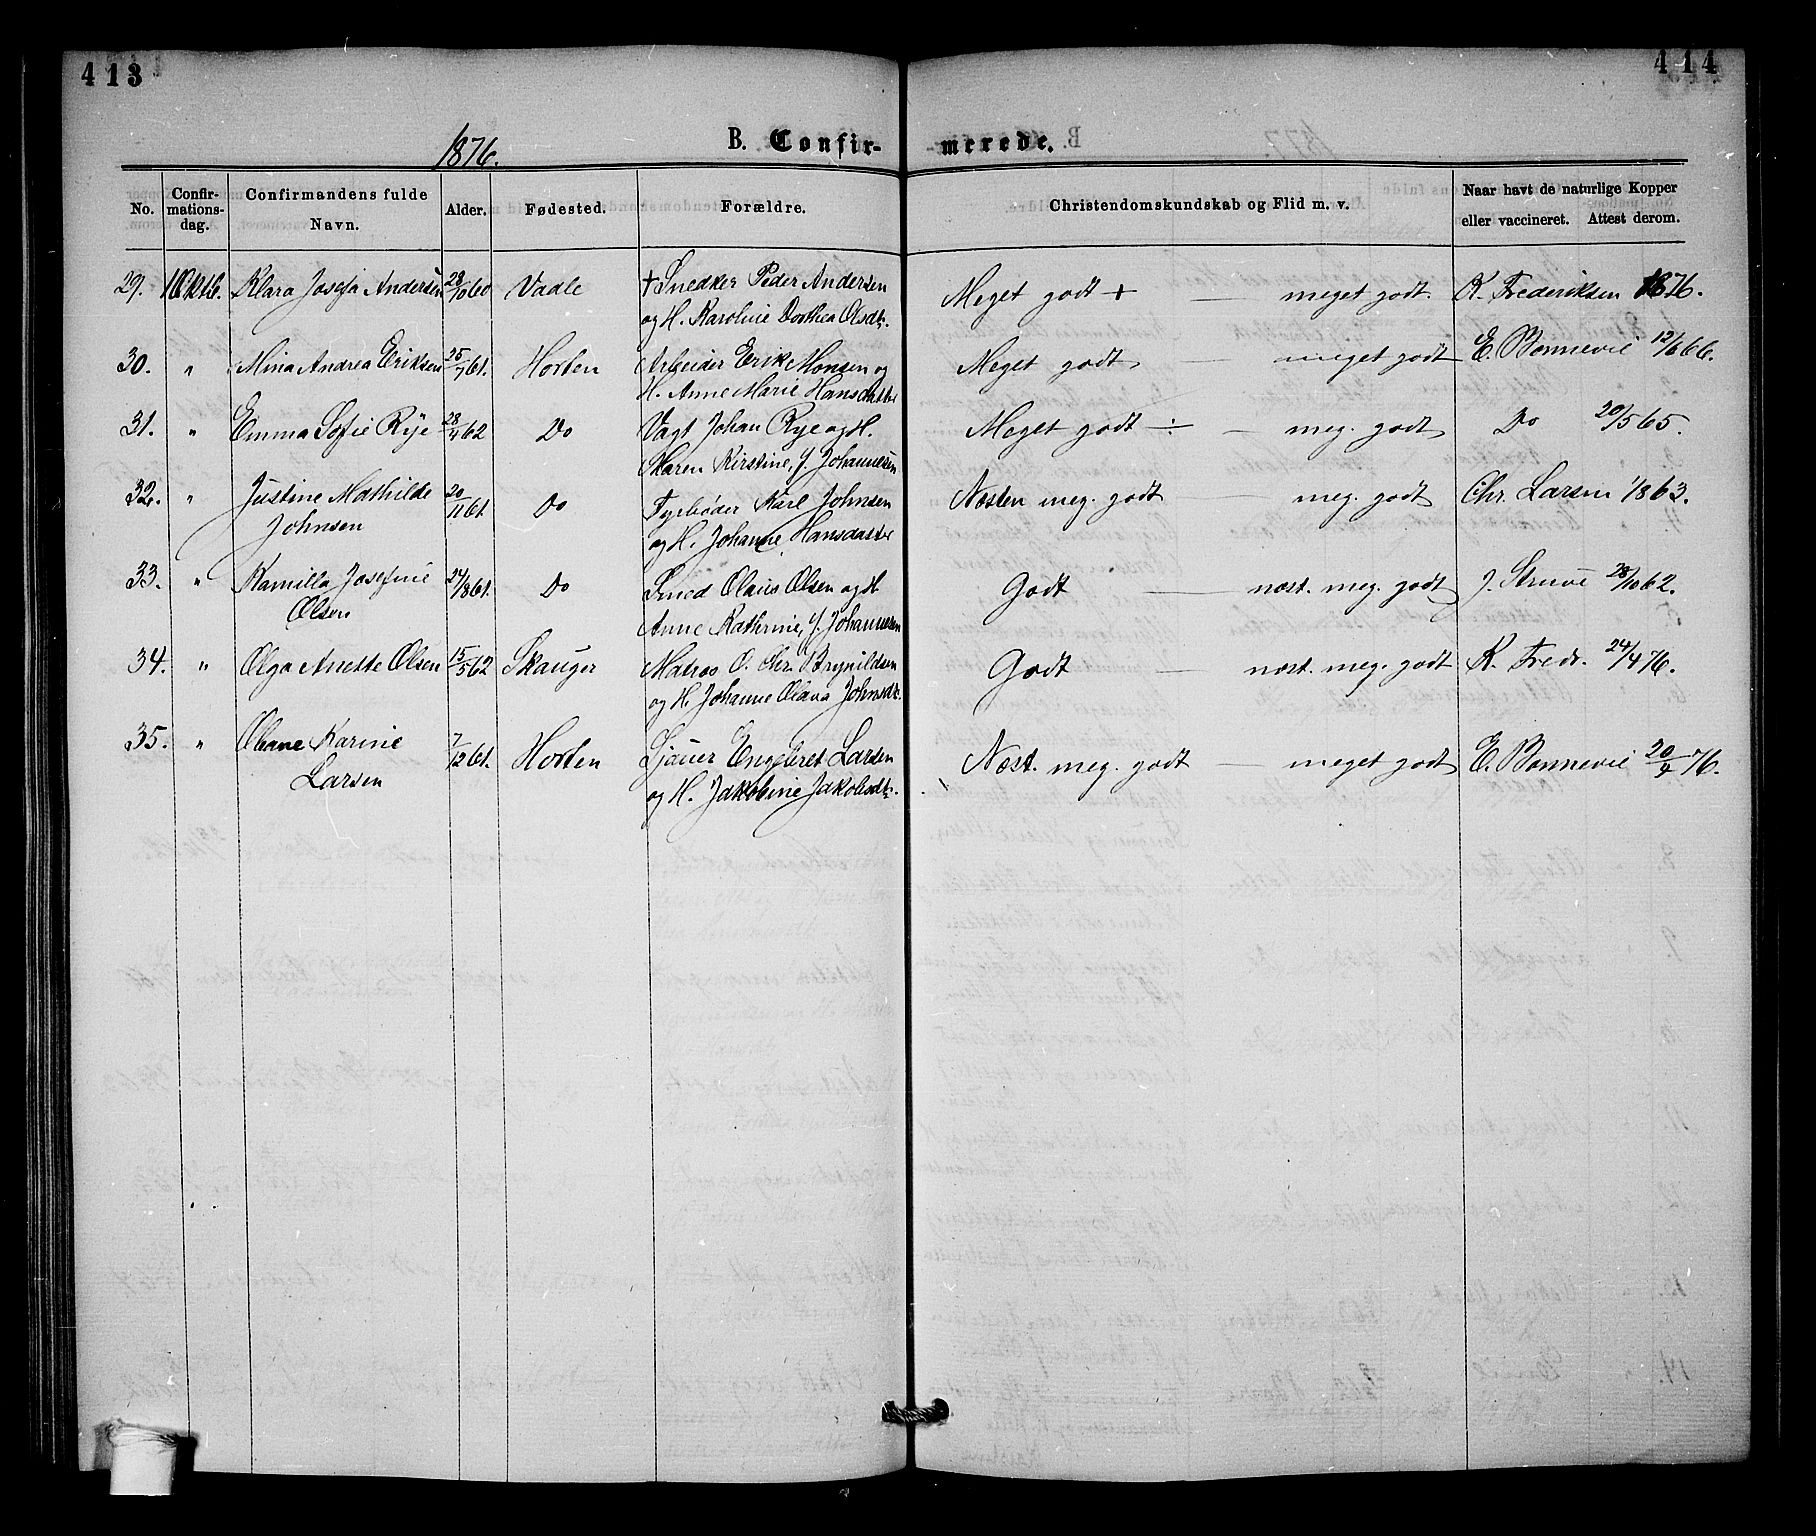 413
414
1876.
B. Confir-
merede.
No.
Confir-
mations-
dag.
Confirmandens fulde
Navn.
Alder.
Fødested.
Forældre.
Christendomskundskab og Flid m. v.
Naar havt de naturlige Kopper
eller vaccineret. Attest derom.
29. 1 Oktb. Klara Josefa Andersen 28/10 60 Vadle + Snedker Peder Andersen Meget godt + — meget godt. K. Frederiksen 1876.
og H. Karoline Dorthea Olsdt.
30. " Mina Andrea Eriksen 25/7 61. Horten Arbeider Erik Monsen og Meget godt — meget godt E. Bonnevie 12/6 66.
H. Anne Marie Hansdatter
31. " Emma Sofie Rye 28/4 62 Do Vagt Johan Rye og H. Meget godt ÷ — meg. godt Do 20/5 65.
Maren Kirstine, f. Johannesen
32. " Justine Mathilde 20/11 61. Do Fyrbøder Karl Johnsen Næsten meg. godt — meg. godt Chr. Larsen 1863.
Johnsen og H. Johanne Hansdatter
33. " Kamilla Josefine 24/8 61. Do Smed Olaus Olsen og H. Godt — næst. meg. godt J. Struve 28/10 62.
Olsen Anne Kathrine, f. Johannesen
34. " Olga Anette Olsen 15/5 62 Skauger Matros O. Chr. Brynildsen Godt — næst. meg. godt K. Fredr. 24/4 76.
og H. Johanne Olava Johnsdt.
35. " Oleane Karine 7/12 61. Horten Sjauer Engebret Larsen Næst. meg. godt — meget godt E. Bonnevie 20/4 76.
Larsen og H. Jakobine Jakobsdt.